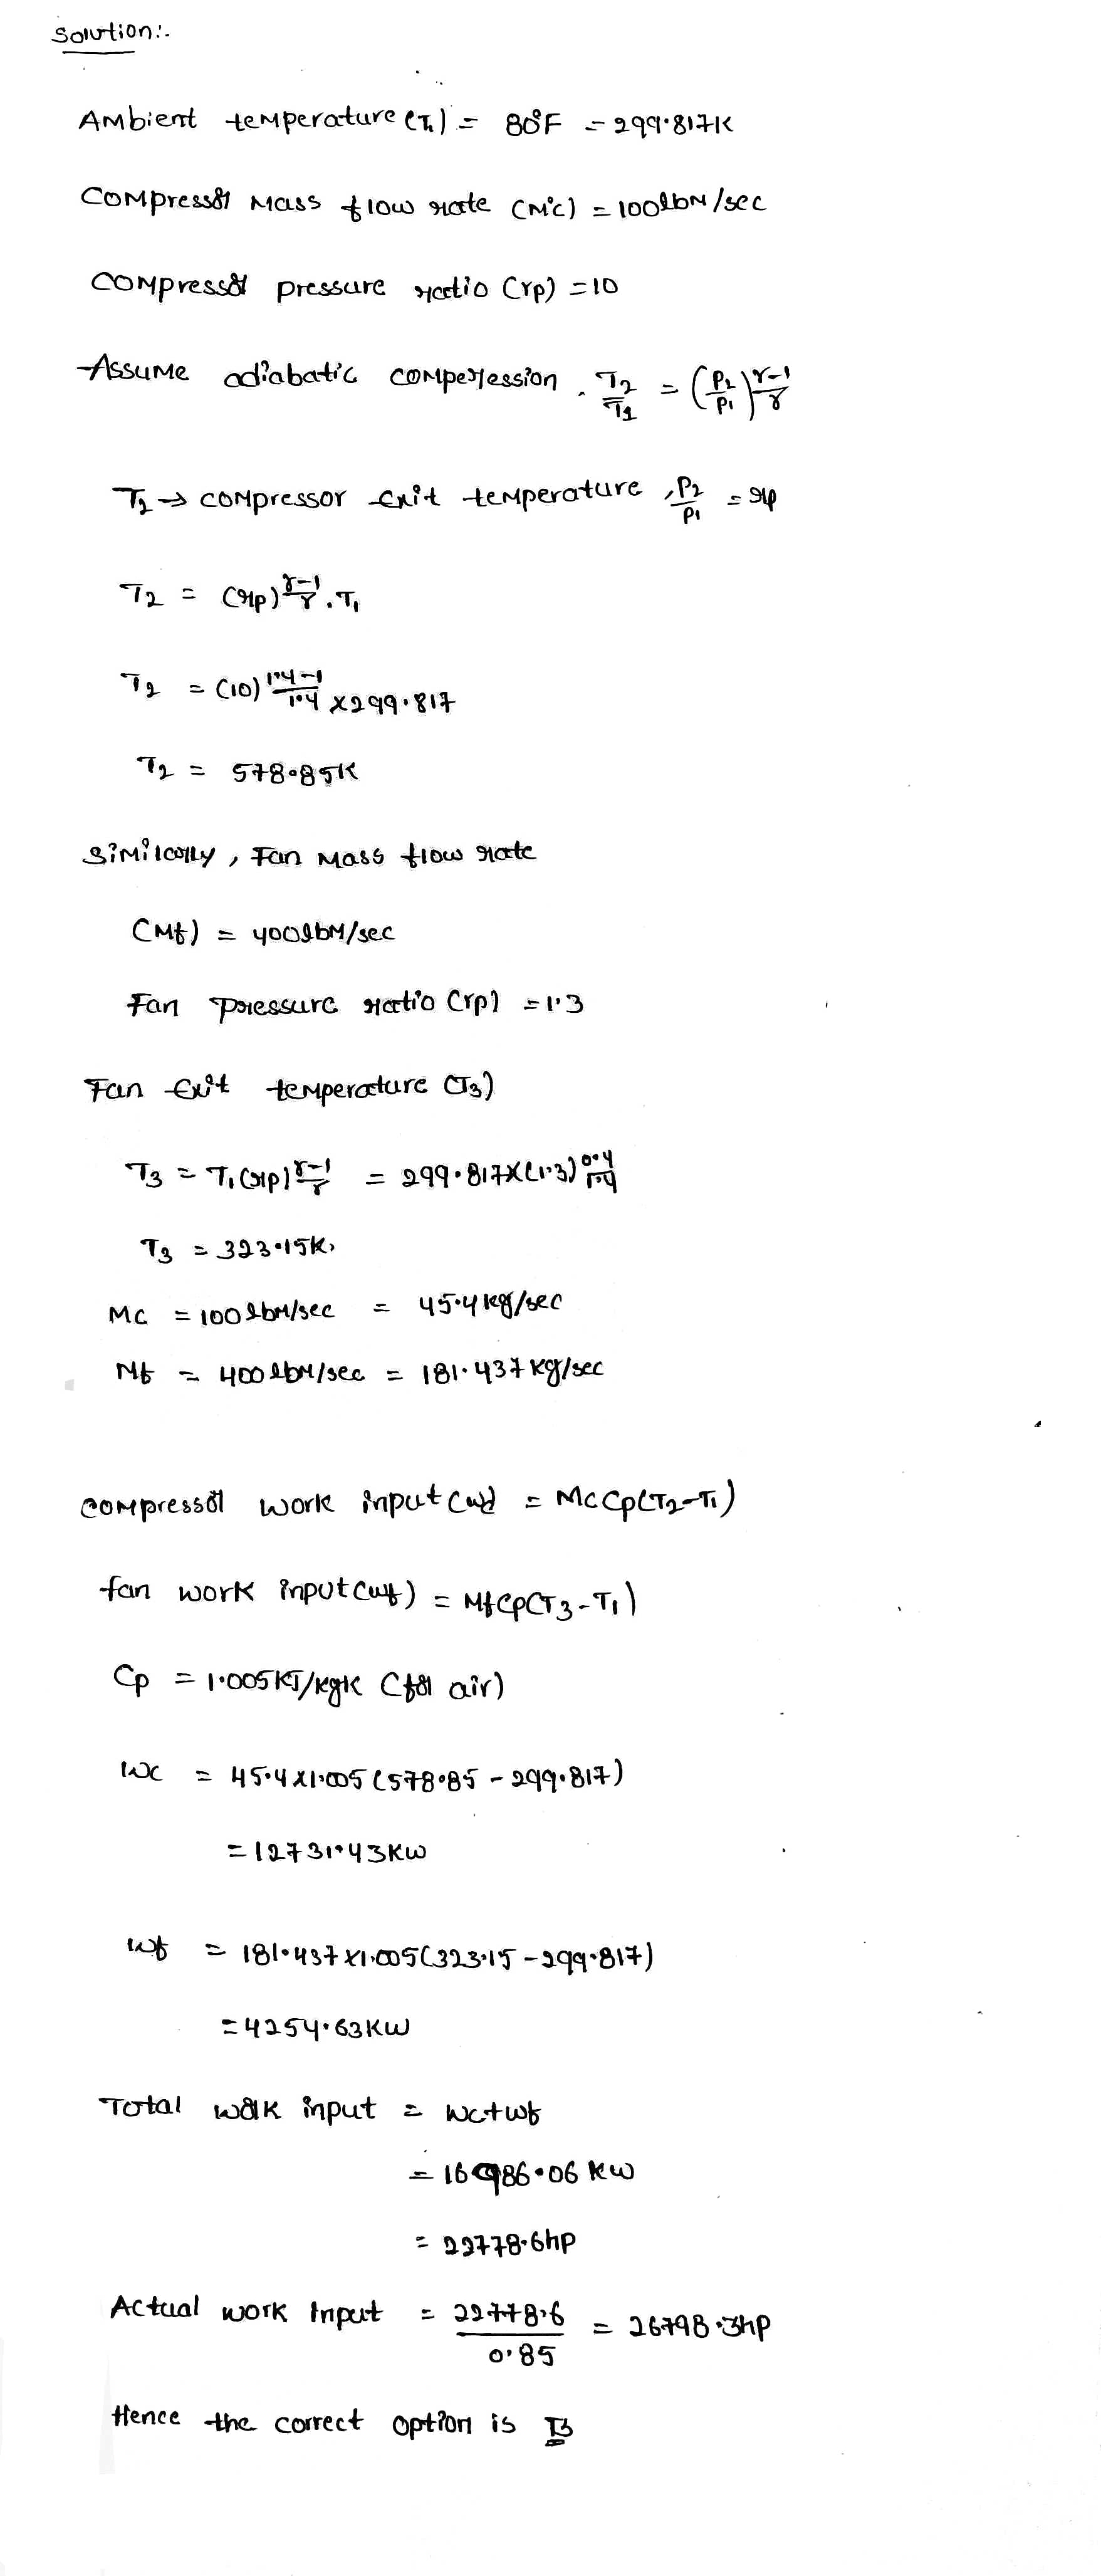 Solution:.
Ambient temperature (T1) = 80°F = 299.817K
Compressor Mass flow rate (ṁc) = 100lbm/sec
Compressor pressure ratio (rp) = 10
Assume adiabatic compression. T2/T1 = (P2/P1)^(γ-1/γ)
T2 → compressor exit temperature, P2/P1 = rp
T2 = (rp)^(γ-1/γ) . T1
T2 = (10)^(1.4-1/1.4) x 299.817
T2 = 578.85K
Similarly, Fan Mass flow rate
(Mf) = 400lbm/sec
Fan Pressure ratio (rp) = 1.3
Fan Exit temperature (T3)
T3 = T1 (rp)^(γ-1/γ) = 299.817x(1.3)^(0.4/1.4)
T3 = 323.15K,
Mc = 100lbm/sec = 45.4kg/sec
Mf = 400lbm/sec = 181.437kg/sec
Compressor work input (wc) = McCp(T2-T1)
fan work input (wf) = MfCp(T3-T1)
Cp = 1.005KJ/kgK (for air)
Wc = 45.4x1.005(578.85 - 299.817)
= 12731.43KW
Wf = 181.437x1.005(323.15 - 299.817)
= 4254.63KW
Total work input = Wc+Wf
= 16986.06 KW
= 22778.6hp
Actual work Input = 22778.6/0.85 = 26798.3hp
Hence the correct option is B